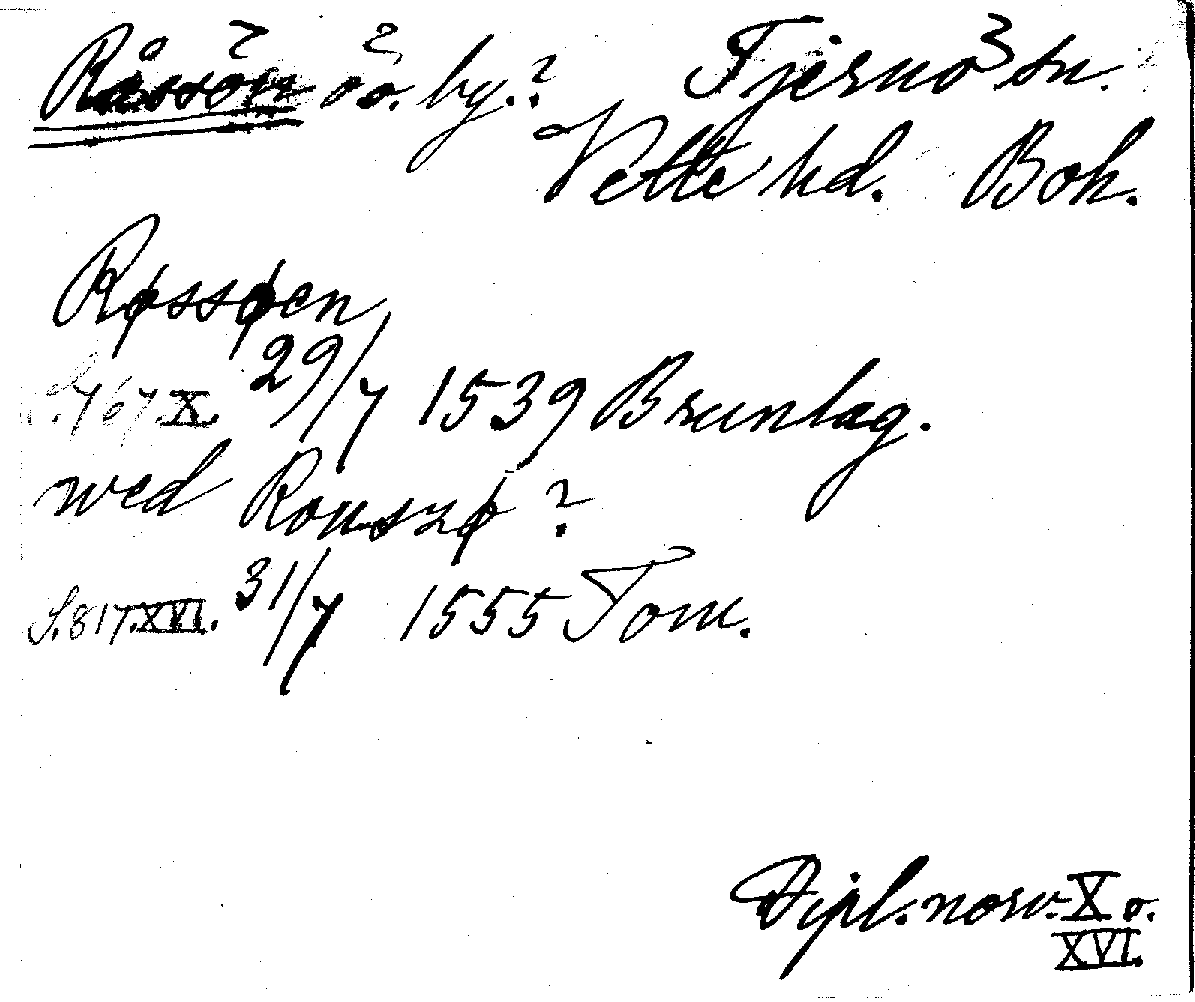 Råssön ö o. by.? Tjernö sn.
Vette hd. Boh.
Røssøen
S. 767 X. 29/7 1539 Brunlag.
wed Rouszø?
S. 817. XVI. 31/7 1555 Tom.
Dipl. norv. X o.
XVI.